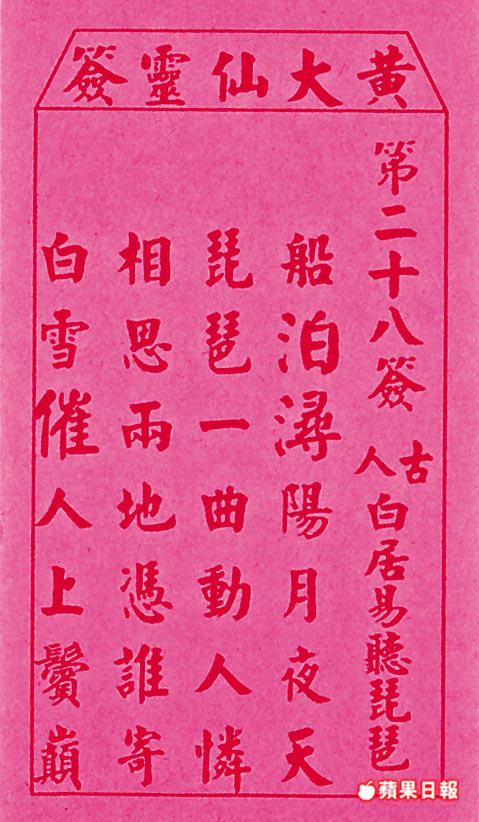 黄大仙靈簽
第二十八簽 古人 白居易聽琵琶
船泊潯陽月夜天
琵琶一曲動人憐
相思兩地憑誰寄
白雪催人上鬢巔
蘋果日報